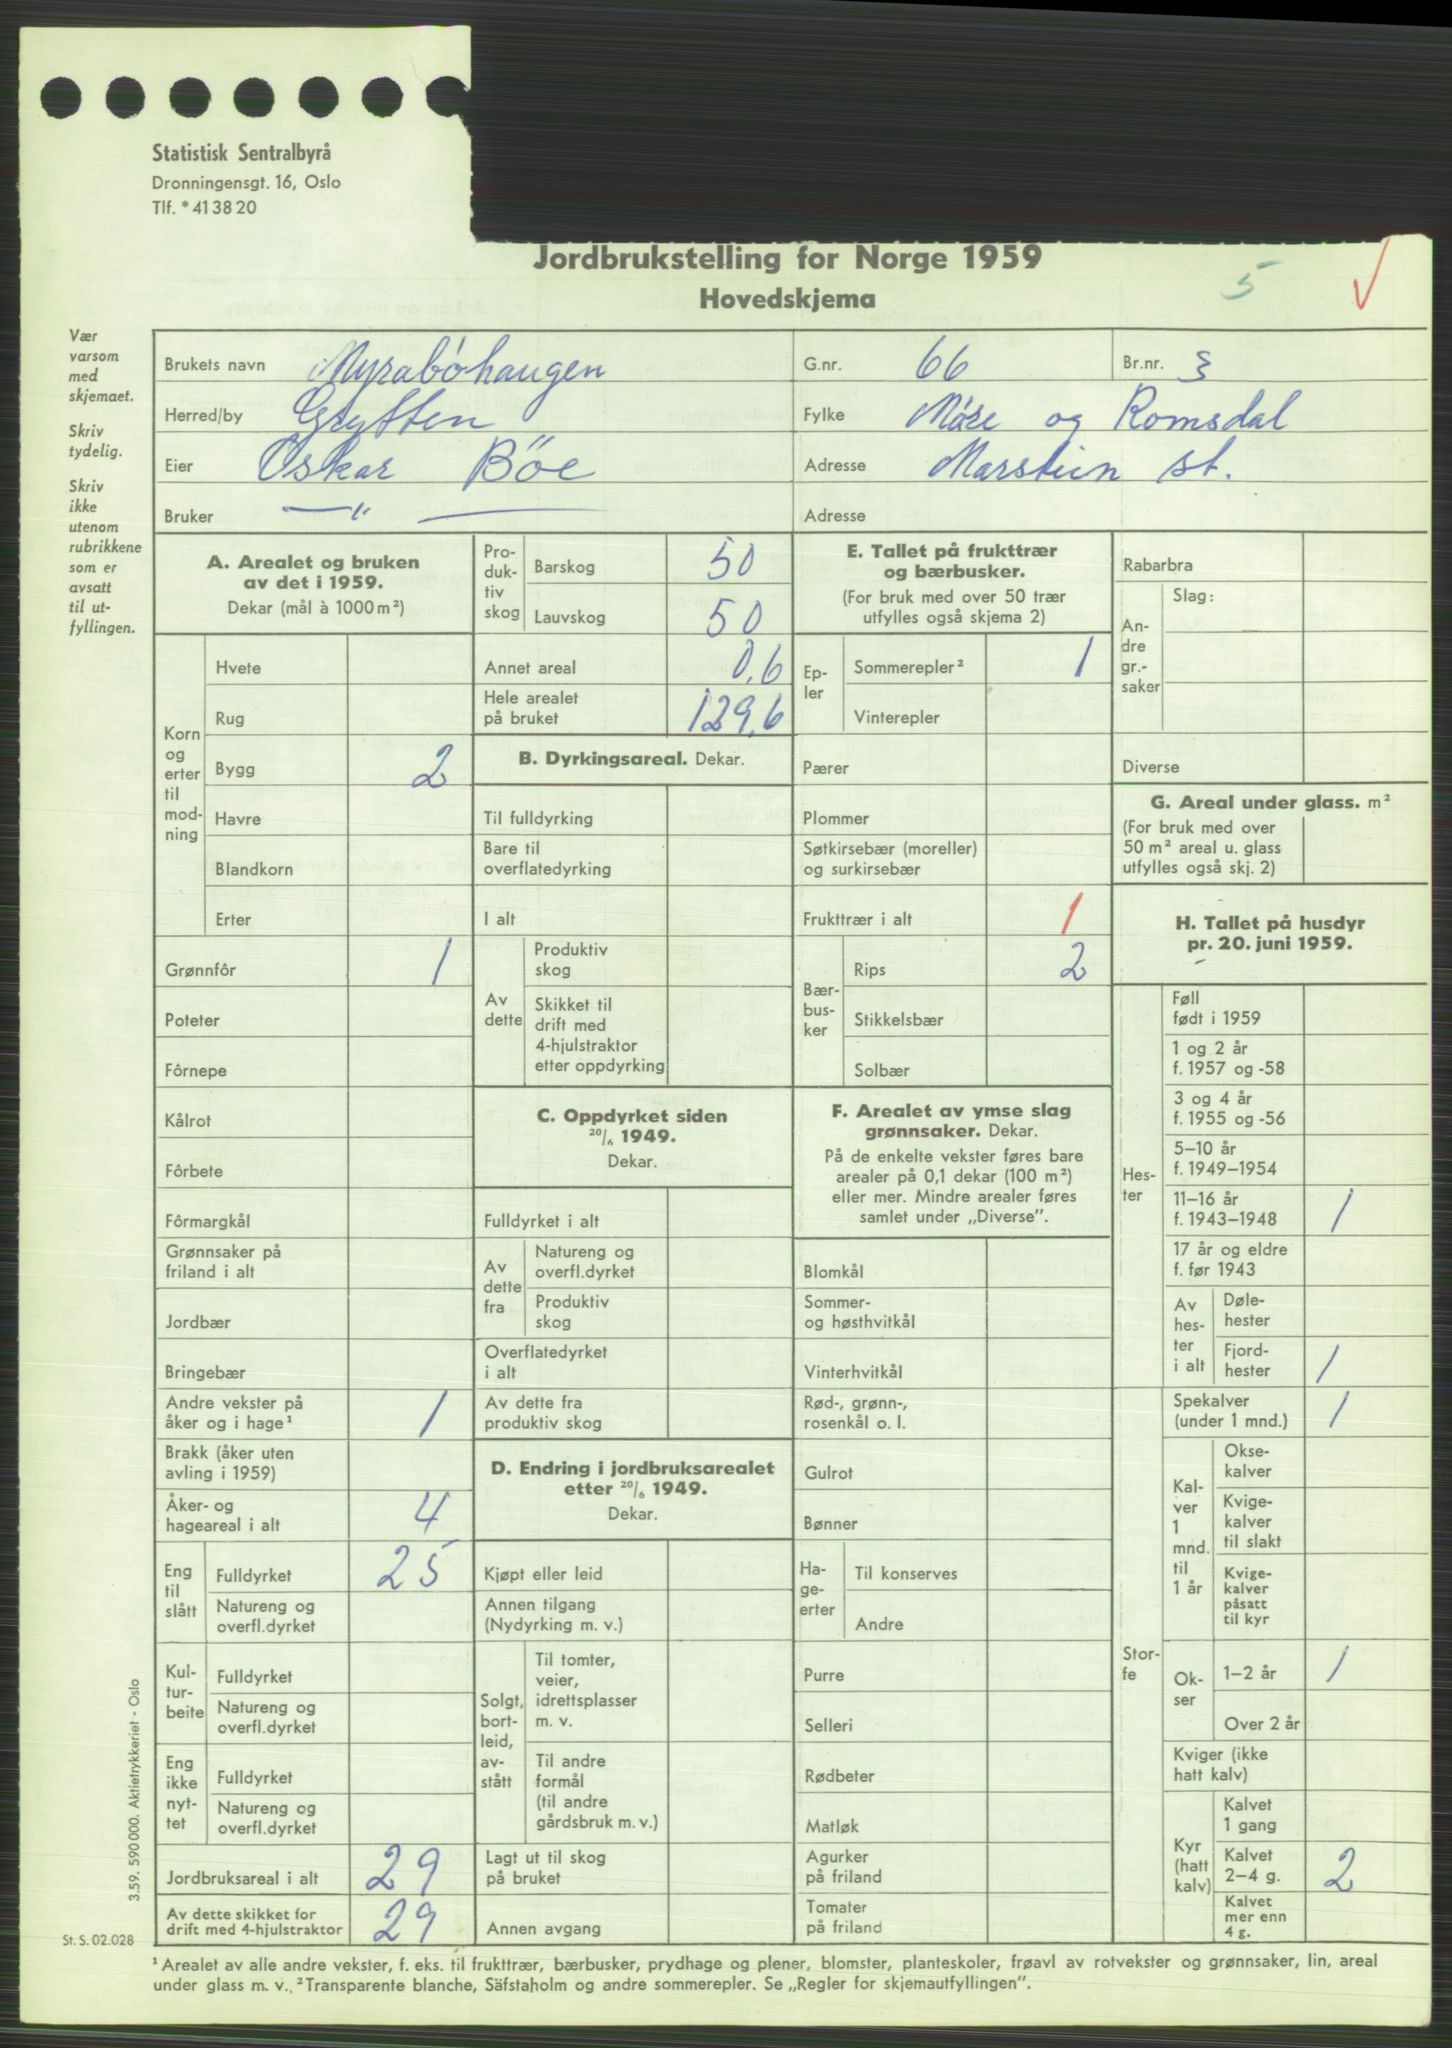 Statistisk Sentralbyrå
Dronningensgt. 16, Oslo
Tlf. * 41 38 20
Jordbrukstelling for Norge 1959
Hovedskjema
5
Vær
varsom
med
skjemaet.
Skriv
tydelig.
Skriv
ikke
utenom
rubrikkene
som er
avsatt
til ut-
fyllingen.
Brukets navn Myrabøhaugen G.nr. 66 Br.nr. 3
Herred/by Grytten Fylke Møre og Romsdal
Eier Oskar Böe Adresse Marstein st.
Bruker — " — Adresse
A. Arealet og bruken
av det i 1959.
Dekar (mål à 1000 m²)
Korn
og
erter
til
mod-
ning
Hvete
Rug
Bygg 2
Havre
Blandkorn
Erter
Grønnfôr 1
Poteter
Fôrnepe
Kålrot
Fôrbete
Fôrmargkål
Grønnsaker på
friland i alt
Jordbær
Bringebær
Andre vekster på
åker og i hage¹ 1
Brakk (åker uten
avling i 1959)
Åker- og
hageareal i alt 4
Eng
til
slått
Fulldyrket 25
Natureng og
overfl.dyrket
Kul-
tur-
beite
Fulldyrket
Natureng og
overfl.dyrket
Eng
ikke
nyt-
tet
Fulldyrket
Natureng og
overfl.dyrket
Jordbruksareal i alt 29
Av dette skikket for
drift med 4-hjulstraktor 29
Pro-
duk-
tiv
skog
Barskog 50
Lauvskog 50
Annet areal 0,6
Hele arealet
på bruket 129,6
B. Dyrkingsareal. Dekar.
Til fulldyrking
Bare til
overflatedyrking
I alt
Av
dette
Produktiv
skog
Skikket til
drift med
4-hjulstraktor
etter oppdyrking
C. Oppdyrket siden
20/6 1949.
Dekar.
Fulldyrket i alt
Av
dette
fra
Natureng og
overfl.dyrket
Produktiv
skog
Overflatedyrket
i alt
Av dette fra
produktiv skog
D. Endring i jordbruksarealet
etter 20/6 1949.
Dekar.
Kjøpt eller leid
Annen tilgang
(Nydyrking m. v.)
Solgt,
bort-
leid,
av-
stått
Til tomter,
veier,
idrettsplasser
m. v.
Til andre
formål
(til andre
gårdsbruk m. v.)
Lagt ut til skog
på bruket
Annen avgang
E. Tallet på frukttrær
og bærbusker.
(For bruk med over 50 trær
utfylles også skjema 2)
Ep-
ler
Sommerepler² 1
Vinterepler
Pærer
Plommer
Søtkirsebær (moreller)
og surkirsebær
Frukttrær i alt 1
Bær-
bus-
ker
Rips 2
Stikkelsbær
Solbær
F. Arealet av ymse slag
grønnsaker. Dekar.
På de enkelte vekster føres bare
arealer på 0,1 dekar (100 m²)
eller mer. Mindre arealer føres
samlet under „Diverse”.
Blomkål
Sommer-
og høsthvitkål
Vinterhvitkål
Rød-, grønn-,
rosenkål o. l.
Gulrot
Bønner
Ha-
ge-
erter
Til konserves
Andre
Purre
Selleri
Rødbeter
Matløk
Agurker
på friland
Tomater
på friland
Rabarbra
An-
dre
gr.-
saker
Slag:
Diverse
G. Areal under glass. m²
(For bruk med over
50 m² areal u. glass
utfylles også skj. 2)
H. Tallet på husdyr
pr. 20. juni 1959.
Hes-
ter
Føll
født i 1959
1 og 2 år
f. 1957 og -58
3 og 4 år
f. 1955 og -56
5–10 år
f. 1949–1954
11–16 år
f. 1943–1948 1
17 år og eldre
f. før 1943
Av
hes-
ter
i alt
Døle-
hester
Fjord-
hester 1
Stor-
fe
Spekalver
(under 1 mnd.) 1
Kal-
ver
1
mnd.
til
1 år
Okse-
kalver
Kvige-
kalver
til slakt
Kvige-
kalver
påsatt
til kyr
Ok-
ser
1–2 år 1
Over 2 år
Kviger (ikke
hatt kalv)
Kyr
(hatt
kalv)
Kalvet
1 gang
Kalvet
2–4 g. 2
Kalvet
mer enn
4 g.
3.59. 590 000. Aktietrykkeriet - Oslo
St. S. 02.028
¹ Arealet av alle andre vekster, f. eks. til frukttrær, bærbusker, prydhage og plener, blomster, planteskoler, frøavl av rotvekster og grønnsaker, lin, areal
under glass m. v. ² Transparente blanche, Säfstaholm og andre sommerepler. Se „Regler for skjemautfyllingen”.